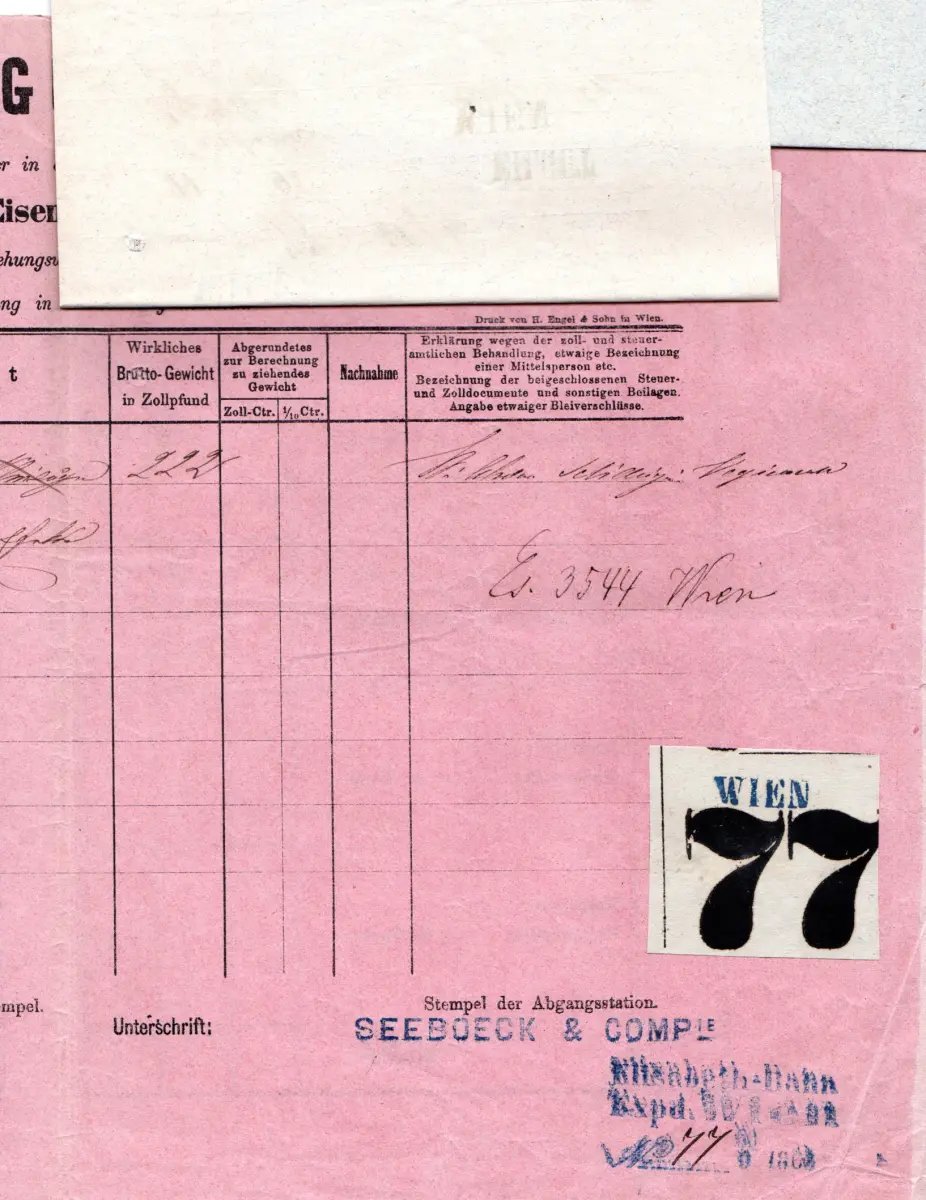 G
er in
Eisen
ehungsv
ng in
Druck von H. Engel & Sohn in Wien.
t
Wirkliches
Brutto-Gewicht
in Zollpfund
Abgerundetes
zur Berechnung
zu ziehendes
Gewicht
Zoll-Ctr. 1/10 Ctr.
Nachnahme
Erklärung wegen der zoll- und steuer-
amtlichen Behandlung, etwaige Bezeichnung
einer Mittelsperson etc.
Bezeichnung der beigeschlossenen Steuer-
und Zolldocumente und sonstigen Beilagen.
Angabe etwaiger Bleiverschlüsse.
222
Es. 3544 Wien
WIEN
77
mpel.
Unterschrift:
Stempel der Abgangsstation.
SEEBOECK & COMPIE
Elisabeth-Bahn
Expd. Wien
No 77